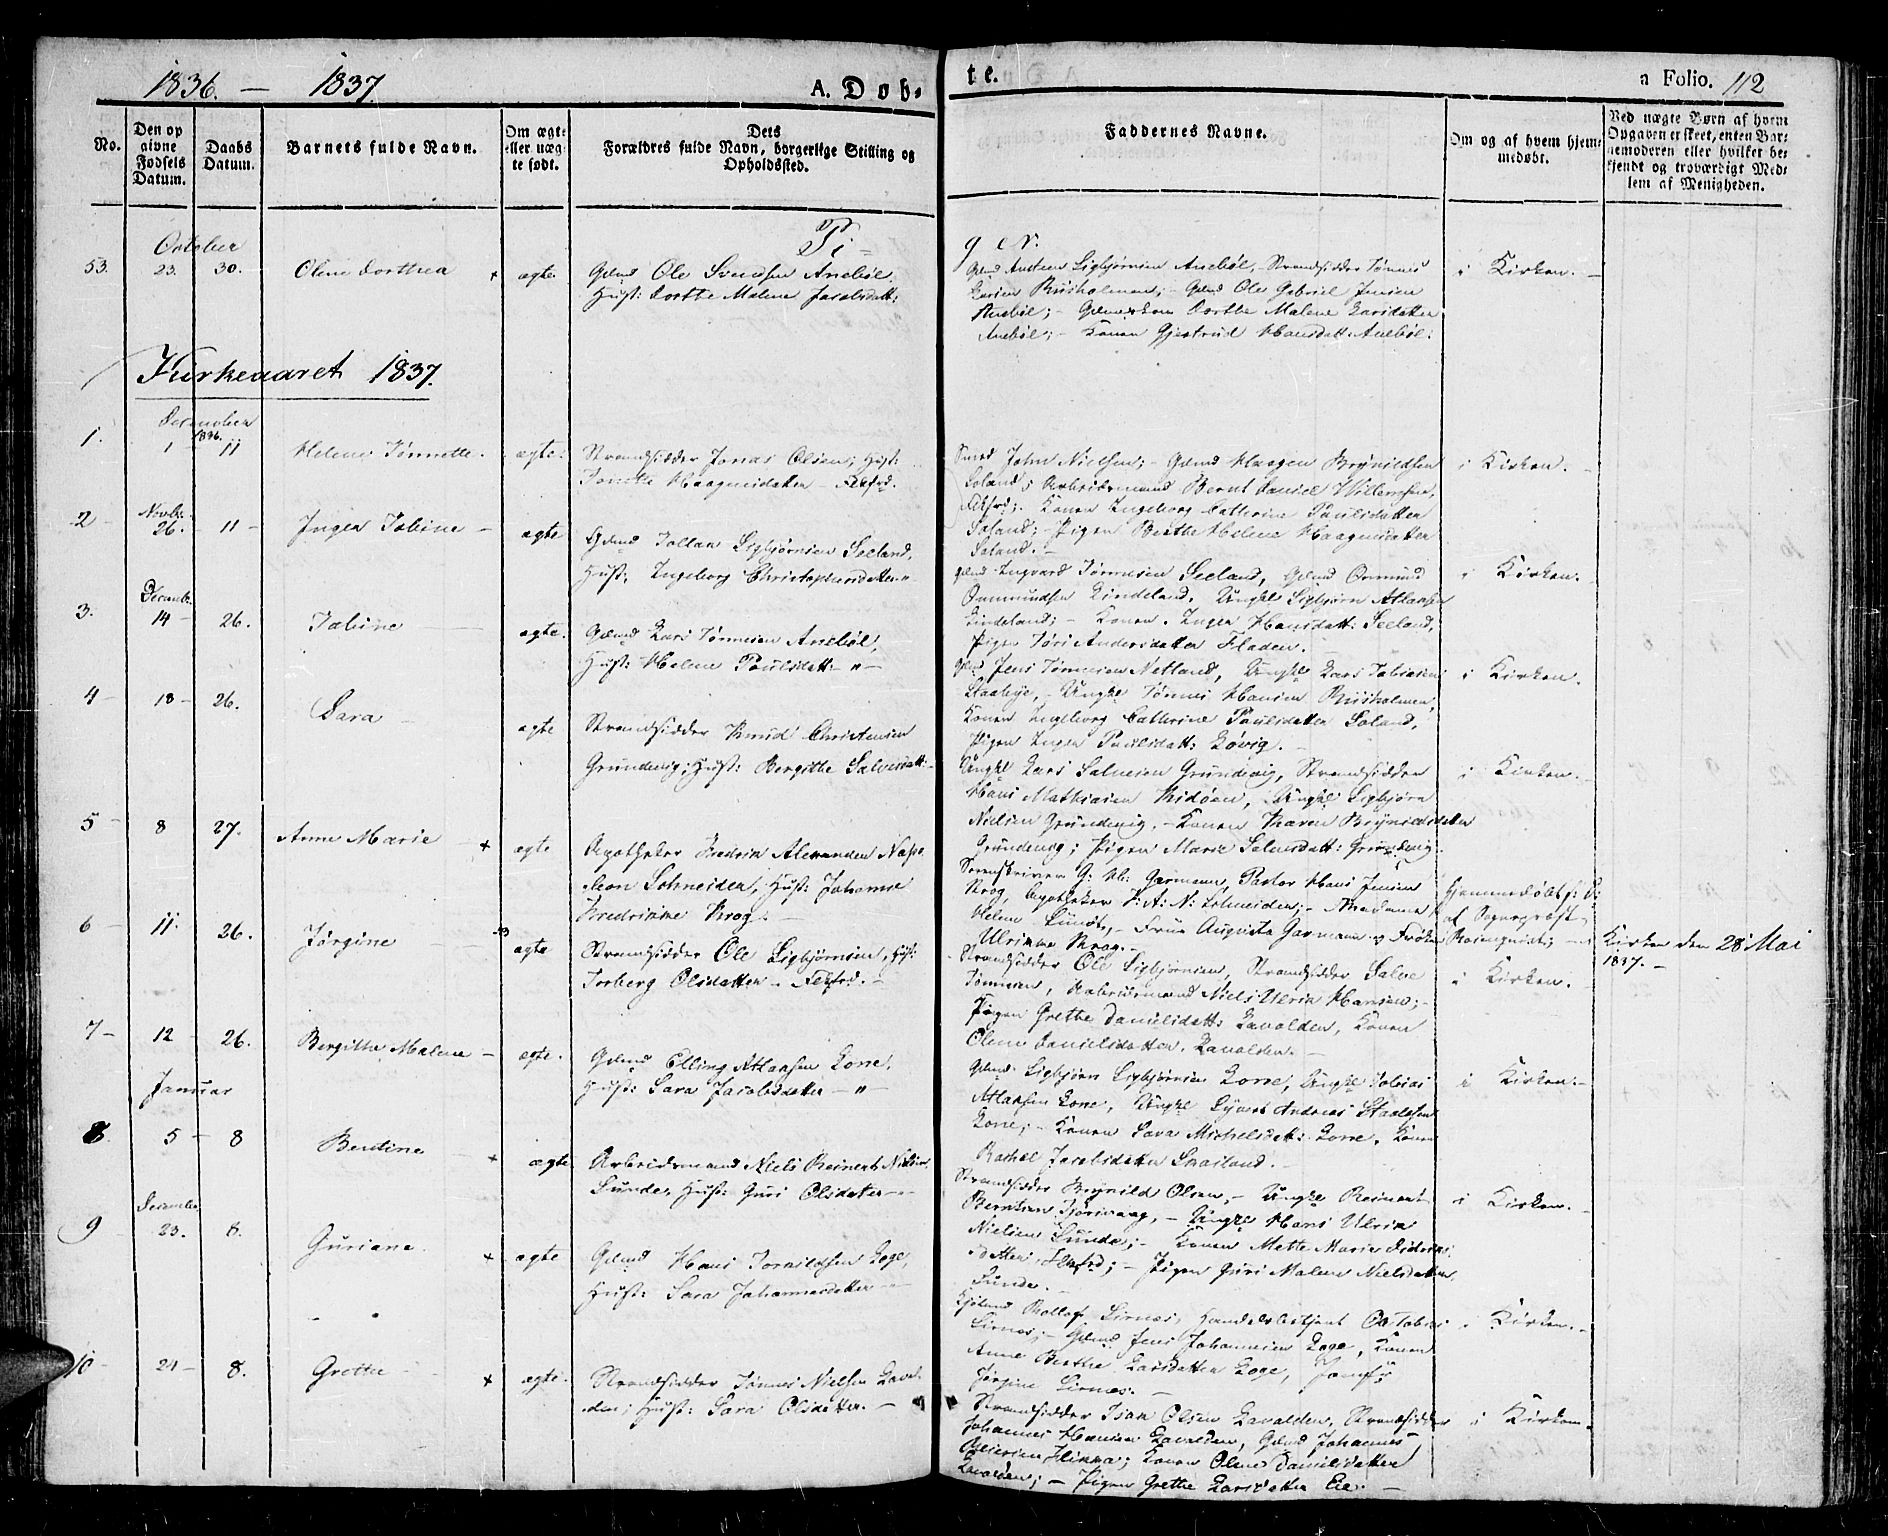 1836. — 1837.
A. Dob-
te.
a Folio. 112
No.
Den op
givne
Fødsels
Datum.
Daabs
Datum.
Barnets fulde Navn.
Om ægte
eller uæg-
te født.
Dets
Forældres fulde Navn, borgerlige Stilling og
Opholdssted.
Faddernes Navne.
Om og af hvem hjem-
medøbt.
Ved uægte Børn af hvem
Opgaven er skeet, enten Bar-
nemoderen eller hvilket be-
kjendt og troværdigt Med-
lem af Menigheden.
Pi-
ger.
October
53. 23. 30. Olene Dorthea + ægte
Gdmd Ole Svendsen Aneböl
Hust: Dorthe Malene Jacobsdatt:
Gdmd Austeen Sigbjörnsen Aneböl, Strandsidder Tönnes
Larsen Rusholmen; Gdmd Ole Gabriel Jensen
Aneböl; Dorthe Malene Larsdatter
Aneböl; Konen Gjertrud Hansdatt: Aneböl.
i Kirken.
Kirkeaaret 1837.
December
1836.
1. 1 11 Helene Tönnette. ægte.
Strandsidder Jonas Olsen; Hust:
Haagensdatter Flekfrd.
Smed John Nielsen; Gdmd Haagen Brynildsen
Loland; Arbeidsmand Bernt Daniel Willemsen,
Flkfrd; Konen Ingeborg Cathrine Paulsdatter
Loland; Pigen Berthe Helene Haagensdatter
Loland.
i Kirken.
Novbr.
2 26. 11 Inger Tobine ægte
Gdmd Tollak Sigbjörnsen Seeland,
Hust: Ingeborg Christophersdatter
Gdmd Ingvard Tönnesen Seeland, Gdmd Ommund
Ommundsen Lindeland, Ungkl Sigbjörn Atlaksen
Lindeland; Konen Inger Hansdatt: Seeland,
Pigen Töri Andersdatter Fladen.
i Kirken.
Decemb.
3. 14 26. Tobine ægte.
Gdmd Lars Tönnesen Aneböl,
Hust: Helene Paulsdatt:
Gdmd Jens Tönnesen Netland, Ungkl Lars Tobiasen
Ungkl Tönnes Hansen Rusholmen,
Konen Ingeborg Cathrine Paulsdatter Loland,
Pigen Inger Paulsdatt: Lövig.
i Kirken.
4 18 26. Sara ægte
Strandsidder Knud Christensen
Grundevig; Hust: Bergitte Salvesdatt:
Ungkl Lars Salvesen Grundevig, Strandsidder
Hans Mathiasen Andöen, Ungkl Sigbjörn
Nielsen Grundevig, Konen Karen Brynildsdatter
Grundevig; Pigen Marie Salvesdatt: Grundevig.
i Kirken.
5 8 27. Anne Marie + ægte
Apotheker Fredrik Alexander Napo-
leon Schneider, Hust: Johanne
Fredrikke Krog.
Sorenskriver G: H: Garmann, Pastor Hans Jensen
Krog, Apotheker F: A: N: Schneider; Madame
Helene Lund, Frue Augusta Garmann og Fröken
Ulrikke Krog.
Hjemmedöbt
af Sogneprest
Rosenqvist,
Kirken den 28 Mai
1837.
6 11. 26. Jörgine ægte
Strandsidder Ole Sigbjörnsen, Hust:
Torberg Olsdatter Flkfrd.
Strandsidder Ole Sigbjörnsen, Strandsidder Salve
Tönnesen, Arbeidsmand Niels Ulrik Hansen;
Pigen Grethe Danielsdatt: Lavolden, Konen
Olene Danielsdatter Lavolden.
i Kirken.
7 12 26. Bergitte Malene ægte.
Gdmd Elling Atlaksen Lone,
Hust: Sara Jacobsdatter
Gdmd Sigbjörn Sigbjörnsen Lone, Ungkl Tobias
Atlaksen Lone, Ungkl Sivert Andreas Staalesen
Lone; Konen Sara Michelsdatt: Lone, Konen
Rachel Jacobsdatter
i Kirken.
Januar
8 5 8 Bentine + ægte
Arbeidsmand Niels Reinert Nielsen
Sunde, Hust: Guri Olsdatter
Strandsidder Brynild Olsen, Ungkl Reinert
Berntsen Ungkl Hans Ulrik
Nielsen Sunde; Konen Mette Marie Didriks-
datter, Flkfrd; Pigen Guri Malene Nielsdatter
Sunde.
i Kirken.
December
9 23. 8. Guriane + ægte
Gdmd Hans Tornildsen Loge,
Hust: Sara Johannesdatter
Rollof Sirnes, Handelsbetjent Ole Tobias
Sirnes; Gdmd Jens Johannesen Loge, Konen
Anne Berthe Larsdatter Loge, Jomfr
Jörgine Sirnes.
i Kirken.
10 24 8. Grethe + ægte.
Strandsidder Tönnes Nielsen Lavol-
den; Hust: Sara Olsdatter.
Strandsidder Isak Olsen Lavolden, Strandsidder
Johannes Hansen Lavolden, Gdmd Johannes
Konen Olene Danielsdatter
Lavolden; Pigen Grethe Larsdatter Eie.
i Kirken.